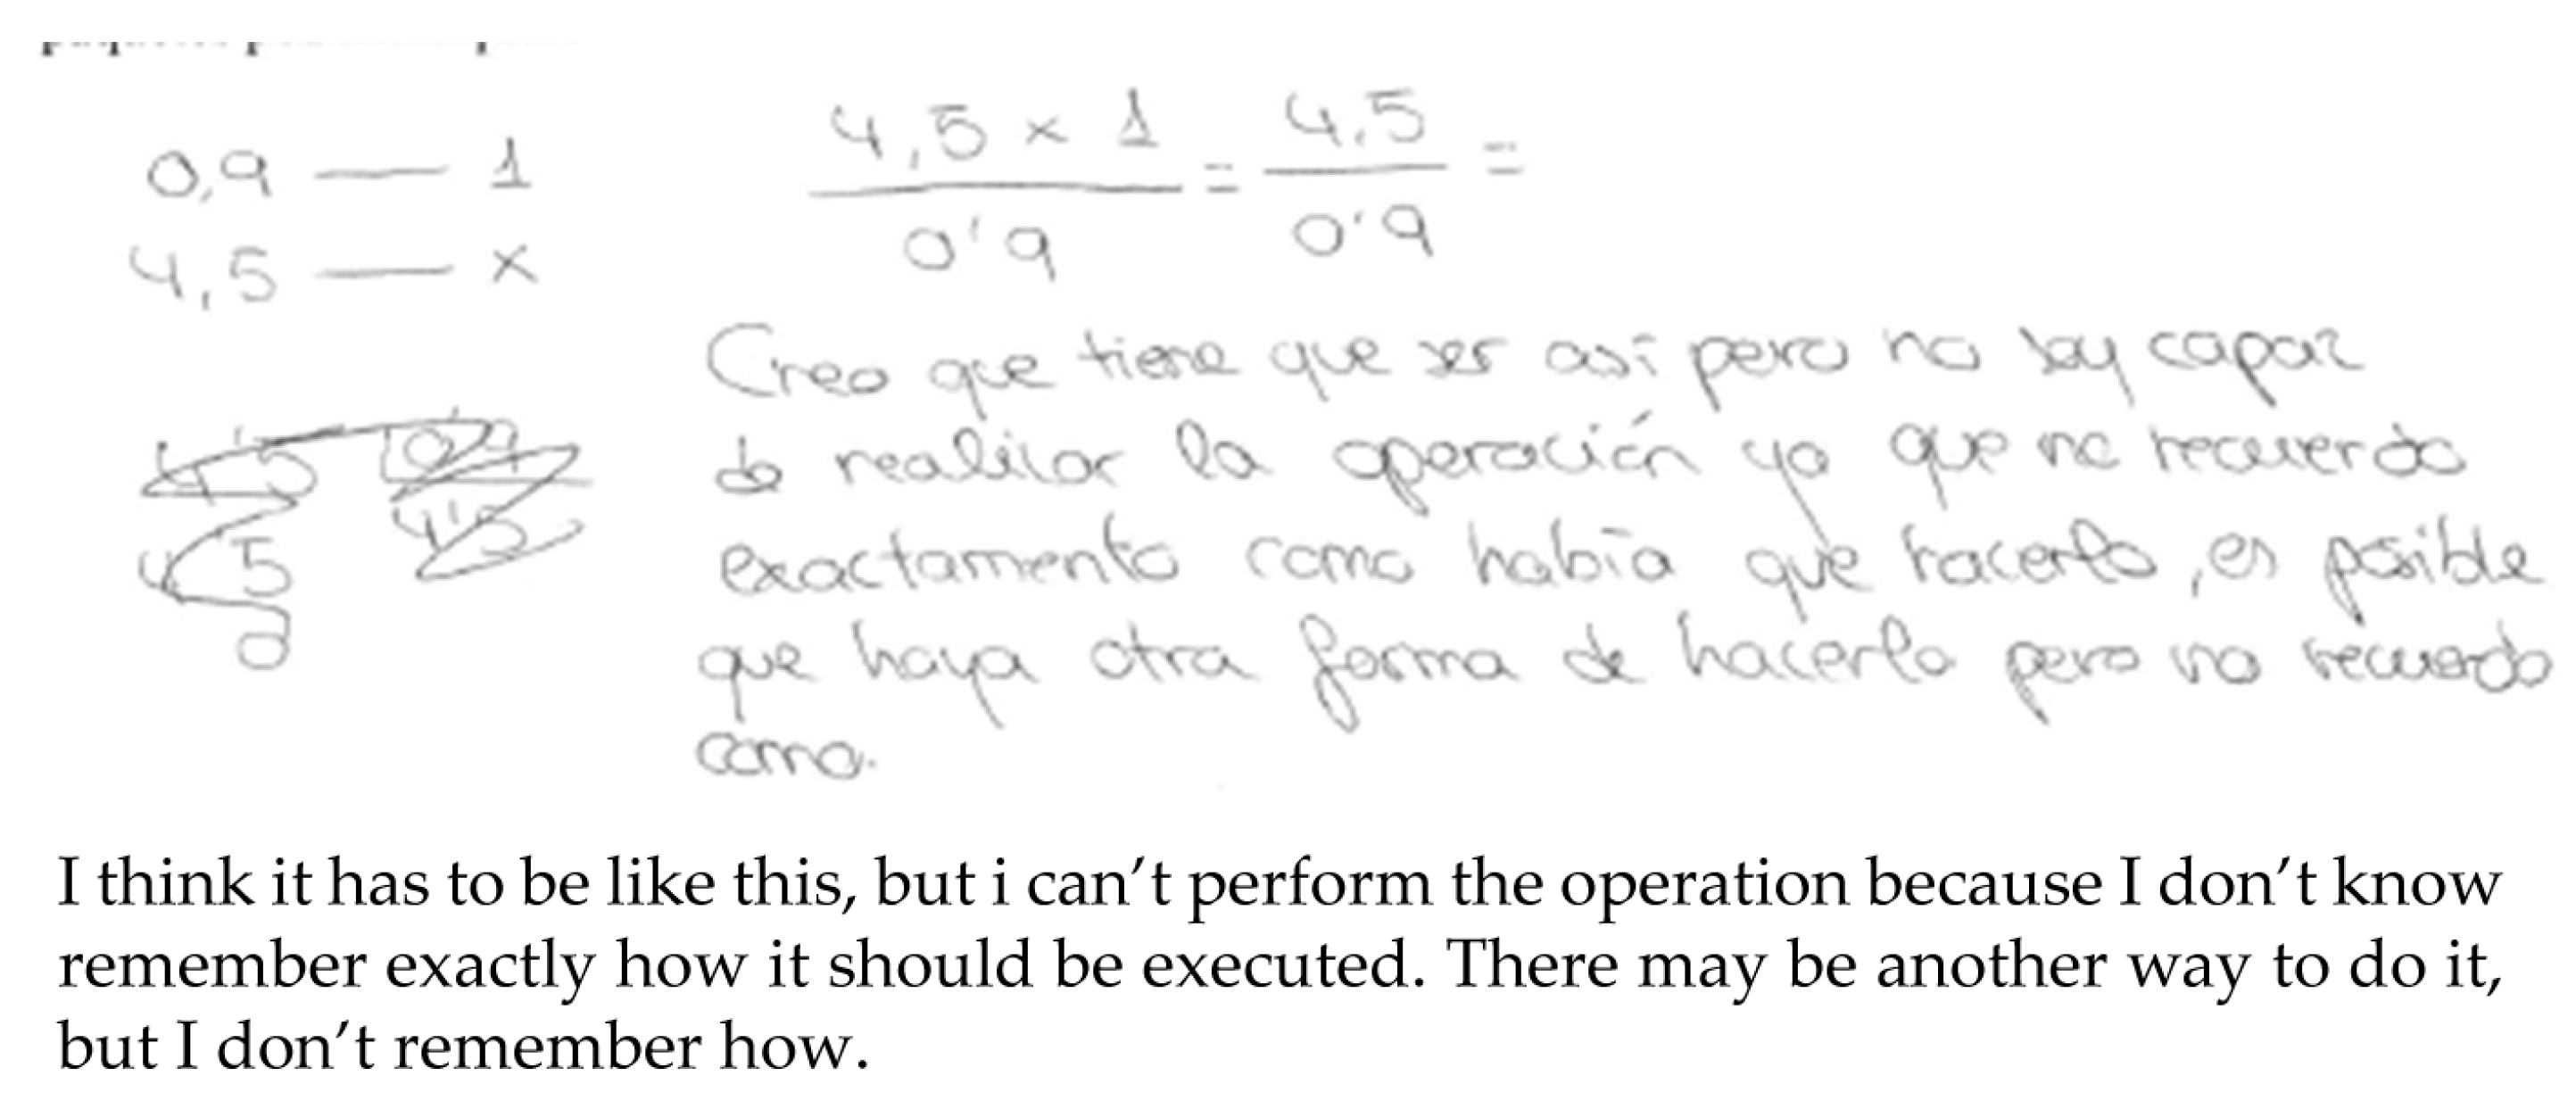 0,9 — 1
4,5 — x
4,5 x 1 / 0'9 = 4,5 / 0'9 =
Creo que tiene que ser así pero no soy capaz
de realizar la operación ya que no recuerdo
exactamente como había que hacerlo, es posible
que haya otra forma de hacerlo pero no recuerdo
como.
I think it has to be like this, but i can't perform the operation because I don't know
remember exactly how it should be executed. There may be another way to do it,
but I don't remember how.